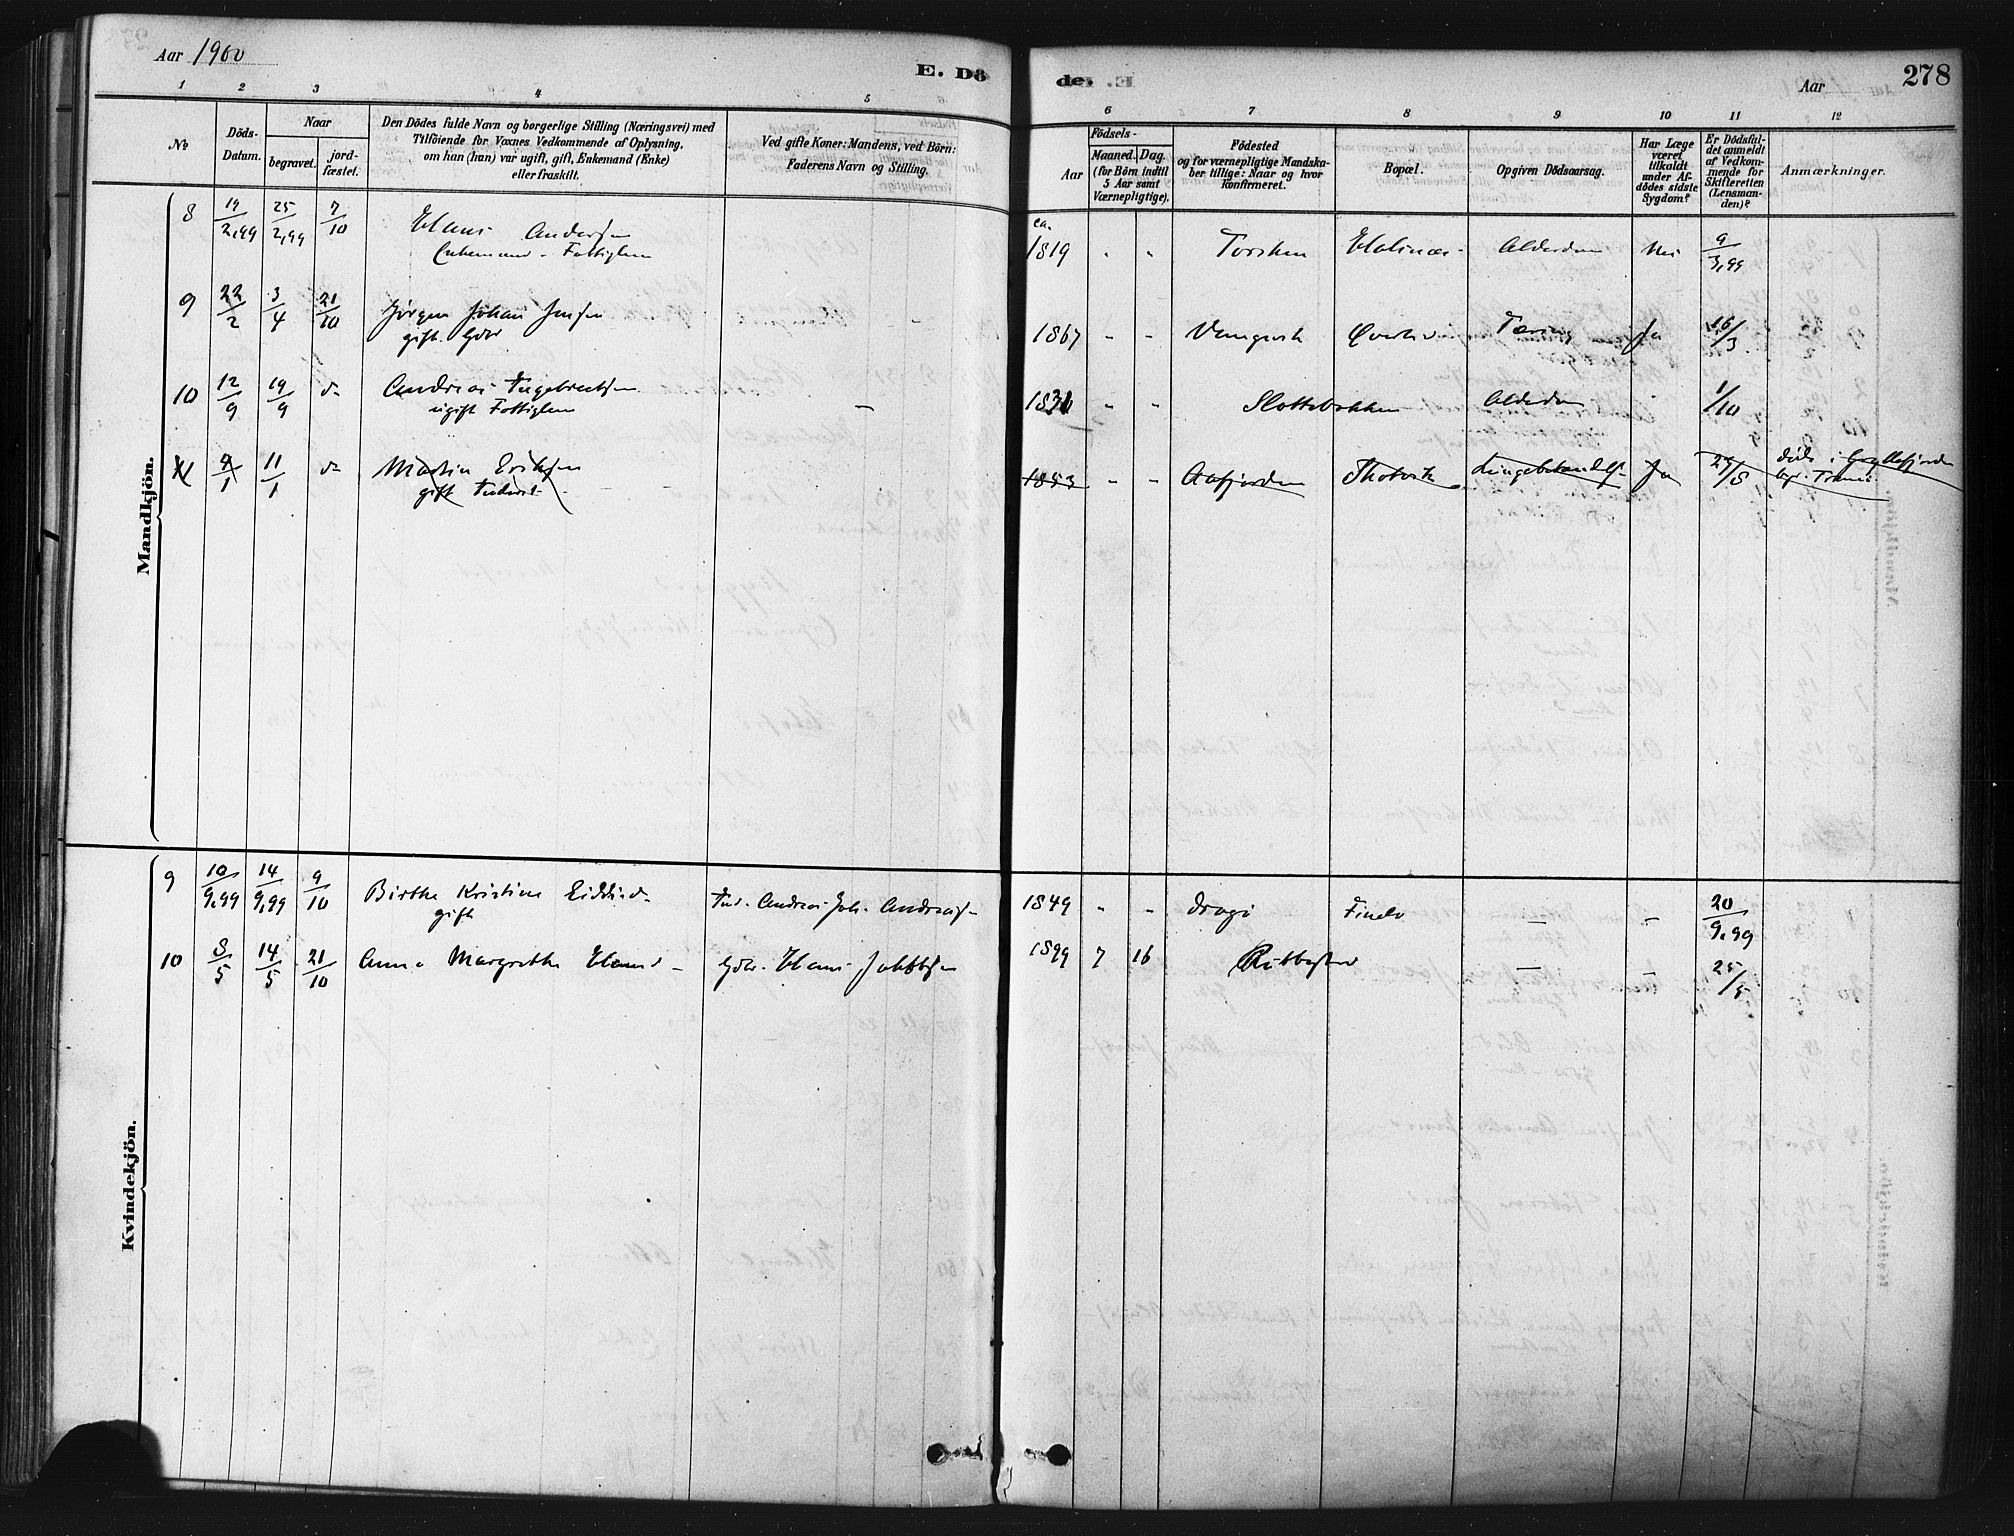 Aar 1900
E. Dö
de.
Aar
278
1 2 3 4 5 6 7 8 9 10 11 12
No
Döds-Datum.
Naar
begravet.
jord-fæstet.
Den Dödes fulde Navn og borgerlige Stilling (Næringsvei) med
Tilföiende for Voxnes Vedkommende af Oplysning,
om han (hun) var ugift, gift, Enkemand (Enke)
eller fraskilt.
Ved gifte Koner: Mandens, ved Börn:
Faderens Navn og Stilling.
Födsels-
Aar
Maaned.
Dag.
(for Börn indtil
5 Aar samt
Værnepligtige).
Födested
og for værnepligtige Mandska-
ber tillige: Naar og hvor
konfirmeret.
Bopæl.
Opgiven Dödsaarsag.
Har Læge
været
tilkaldt
under Af-
dödes sidste
Sygdom?
Er Dödsfal-
det anmeldt
af Vedkom-
mende for
Skifteretten
(Lensman-
den)?
Anmærkninger.
Mandkjön.
8 19/2,99 25/2,99 7/10 Hans Andersen ca. 1819 " " Torsken Alderdom Nei 9/3,99
Enkemand - Fattiglem
9 22/2 3/4 21/10 Jørgen Johan Jensen 1867 " " Tæring Ja 16/3
gift. Gdbr
10 12/9 19/9 do Andreas Ingebrectsen — 1831 " " Slottebakken Alderdom 1/10
ugift Fattiglem
11 4/1 11/1 do Martin Eriksen 1853 " " Aafjorden Lungebetændelse Ja 24/8 død i Gryllefjord
gift Inderst begr. Tranø
Kvindekjön.
9 10/9,99 14/9,99 9/10 Birthe Kristine 1849 " " — — 20/9,99
gift
10 8/5 14/5 21/10 Anna Margrethe Hansd Gdbr. Hans 1899 7 16 — — 25/5